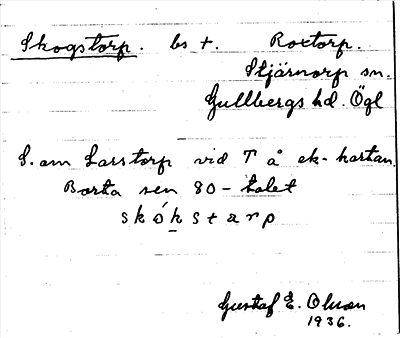 Skogstorp. bs t. Roxtorp.
Stjärnorp sn.
Gullbergs hd. Ögl
S. om Larstorp vid T å ek-kartan.
Borta sen 80-talet
skók̠starp
Gustaf E. Olsson
1936.